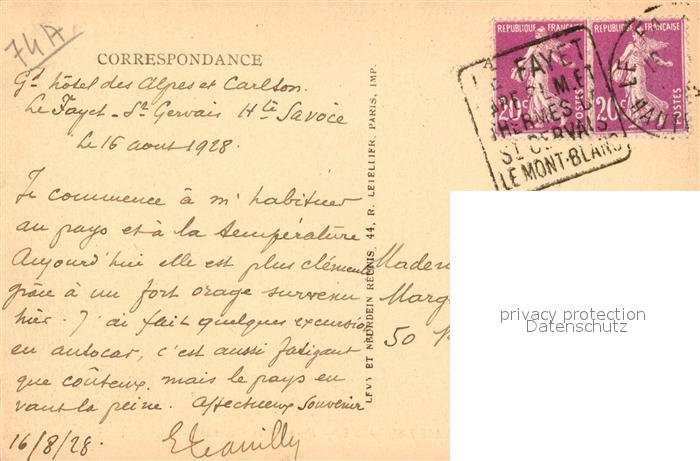 74A
CORRESPONDANCE
Gd hôtel des Alpes et Carlton.
Le Fayet - St Gervais Hte Savoie
Le 16 aout 1928.
Je commence à m'habituer
au pays et à la température
Aujourd'hui elle est plus clémente
grâce à un fort orage survenu
hier. J'ai fait quelques excursio
en autocar, c'est aussi fatigant
que coûteux, mais le pays en
vaut la peine. Affectueux Souvenir
16/8/28.
LEVY ET NEURDEIN RÉUNIS, 44, R. LETELLIER, PARIS, IMP.
Madem
Marg
50
REPUBLIQUE FRANÇAISE
20c
POSTES
REPUBLIQUE FRANÇAISE
20c
POSTES
LE FAYET
THERMES
ST GERVAIS
LE MONT-BLANC
LE FA
HAUTE
privacy protection
Datenschutz